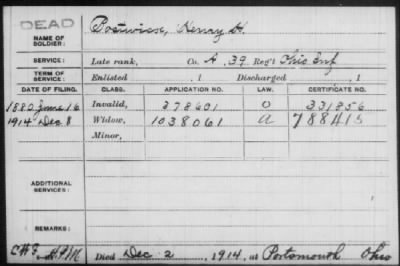 DEAD
NAME OF SOLDIER: Postwiese, Henry H.
SERVICE: Late rank, Co. A, 39 Reg't Ohio Inf
TERM OF SERVICE: Enlisted , 1 Discharged , 1
DATE OF FILING. CLASS. APPLICATION NO. LAW. CERTIFICATE NO.
1880 June 16 Invalid, 378601 O 331856
1914 Dec 8 Widow, 1038061 a 788415
Minor,
ADDITIONAL SERVICES:
REMARKS:
Died Dec 2, 1914, at Portsmouth Ohio